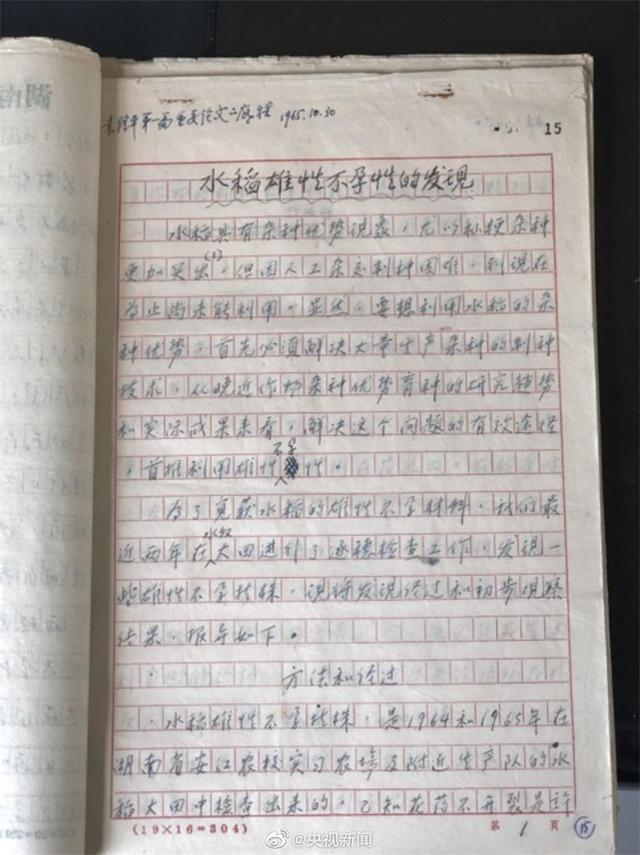 袁隆平第一篇重要论文之底稿 1965.10.30
15
水稻雄性不孕性的发现
水稻具有杂种优势现象，尤以籼粳杂种
更加突出(1)，但因人工杂交制种困难，到现在
为止尚未能利用。显然，要想利用水稻的杂
种优势，首先必须解决大量生产杂种的制种
技术，从晚近作物杂种优势育种的研究趋势
和实际成果来看，解决这个问题的有效途径
，首推利用雄性不孕性。
为了寻获水稻的雄性不孕材料，我们最
近两年在水稻大田进行了逐穗检查工作，发现一
些雄性不孕植株，现将发现经过和初步观察
结果，报导如下。
方法和经过
水稻雄性不孕植株，是1964和1965年在
湖南省安江农校实习农场及附近生产队的水
稻大田中检查出来的。已知花药不开裂是许
(19×16=304)
第 1 页
15
@央视新闻
湖南